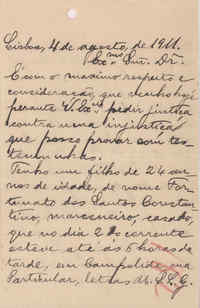 Lisboa, 4 de agosto, de 1911.
Exmo. Snr. Dr.
É com o maximo respeito e
consideração, que venho hoje
perante V. Exa. pedir justiça
contra uma injustiça
que posso provar com tes-
temunhas.
Tenho um filho de 24 an-
nos de idade, de nome For-
tunato dos Santos Constan-
tino, marceneiro, casado,
que no dia 2 do corrente
esteve até ás 6 horas da
tarde, em Campolide, rua
Particular, letras